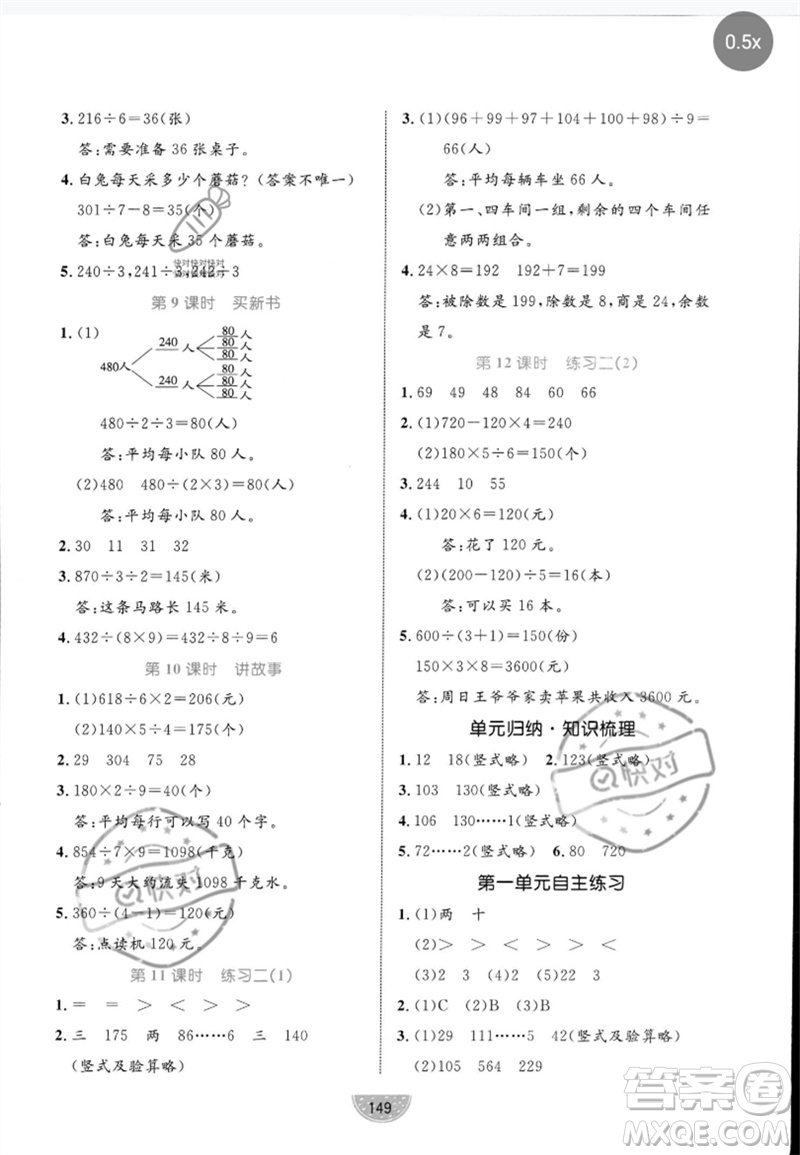 0.5x
3. 216÷6=36(张)
答:需要准备 36 张桌子。
4. 白兔每天采多少个蘑菇?(答案不唯一)
301÷7-8=35(个)
答:白兔每天采 35 个蘑菇。
5. 240÷3,241÷3,242÷3
快对快对快对
第 9 课时 买新书
1. (1)
480人 240 人 80 人
80 人
240 人 80 人
80 人
480÷2÷3=80(人)
答:平均每小队 80 人。
(2)480 480÷(2×3)=80(人)
答:平均每小队 80 人。
2. 30 11 31 32
3. 870÷3÷2=145(米)
答:这条马路长 145 米。
4. 432÷(8×9)=432÷8÷9=6
第 10 课时 讲故事
1. (1)618÷6×2=206(元)
(2)140×5÷4=175(个)
2. 29 304 75 28
3. 180×2÷9=40(个)
答:平均每行可以写 40 个字。
4. 854÷7×9=1098(千克)
答:9 天大约流失 1098 千克水。
5. 360÷(4-1)=120(元)
答:点读机 120 元。
第 11 课时 练习二(1)
1. = = > < > <
2. 三 175 两 86……6 三 140
(竖式及验算略)
3. (1)(96+99+97+104+100+98)÷9=
66(人)
答:平均每辆车坐 66 人。
(2)第一、四车间一组,剩余的四个车间任
意两两组合。
4. 24×8=192 192+7=199
答:被除数是 199,除数是 8,商是 24,余
数是 7。
第 12 课时 练习二(2)
1. 69 49 48 84 60 66
2. (1)720-120×4=240
(2)180×5÷6=150(个)
3. 244 10 55
4. (1)20×6=120(元)
答:花了 120 元。
(2)(200-120)÷5=16(本)
答:可以买 16 本。
5. 600÷(3+1)=150(份)
150×3×8=3600(元)
答:周日王爷爷家卖苹果共收入 3600 元。
单元归纳·知识梳理
1. 12 18(竖式略) 2. 123(竖式略)
3. 103 130(竖式略)
4. 106 130……1(竖式略)
5. 72……2(竖式略) 6. 80 720
第一单元自主练习
1. (1)两 十
(2)> > < > > <
(3)2 4 3
2. (1)C (2)B (3)B
3. (1)29 111……5 42(竖式及验算略)
(2)105 564 229
快对
快对
149
答案卷
MXQE.COM